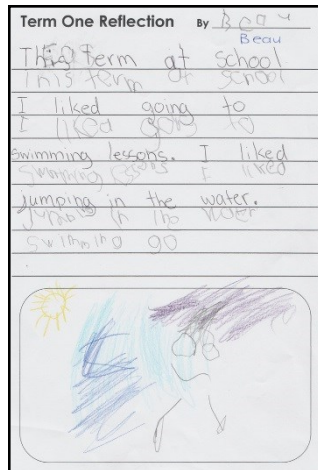 Term One Reflection By Beau
Beau
This term at school
This term at school
I liked going to
I liked going to
swimming lessons. I liked
Swimming lessons I liked
jumping in the water.
Jumping in the water
Swiming go